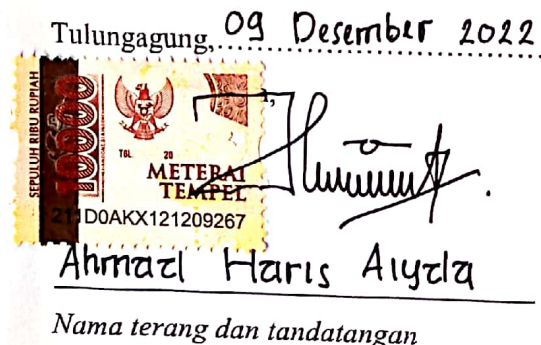 Tulungagung, 09 Desember 2022
SEPULUH RIBU RUPIAH
10000
TGL. 20
METERAI
TEMPEL
D0AKX121209267
Ahmad Haris Aiyda
Nama terang dan tandatangan